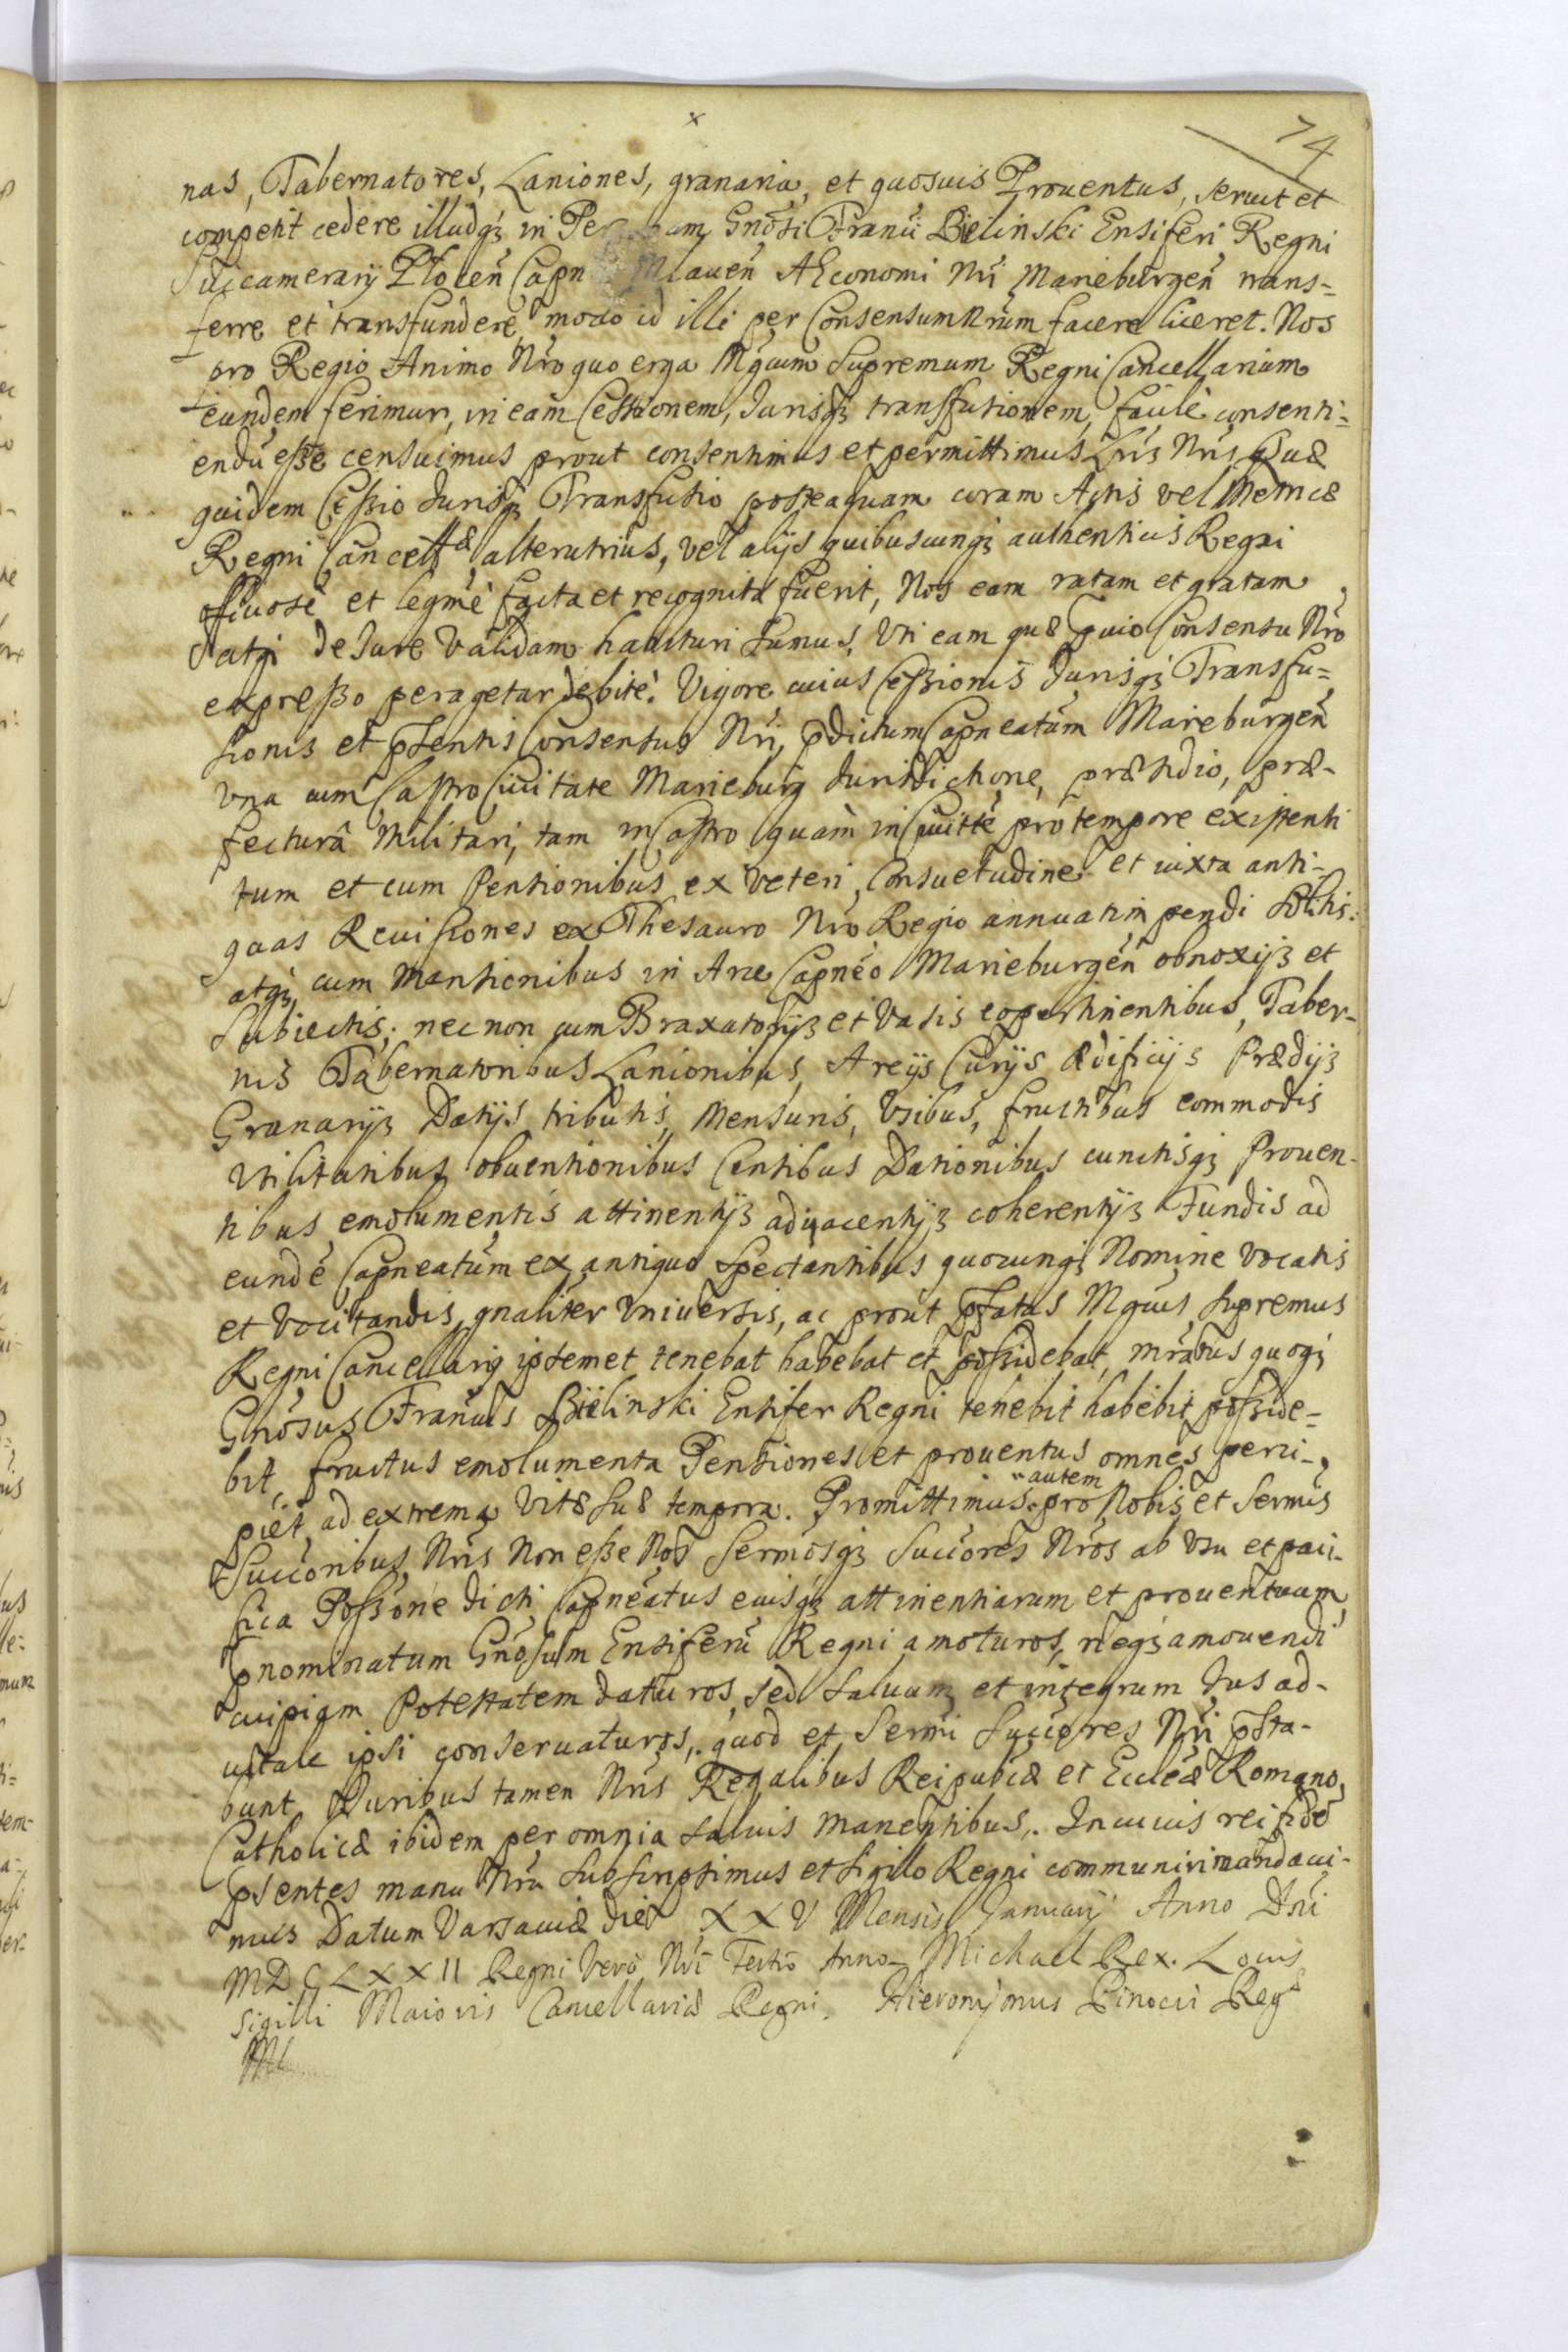 74
nas, Tabernatores, Laniones, granaria, et quosuis Prouentus, seruit et
competit cedere illudq3 in Per am Gnosi Franci Bielinski Ensiferi Regni
Succamerarij Plocen Capn Mlauen AEconomi Nri Marieburgen trans=
ferre et transfundere, modo id illi per Consensum Nrum facere liceret. Nos
pro Regio Animo Nro quo erga Mgcum Supremum Regni Cancellarium
eundem ferimur, in eam Cessionem, Jurisq3 transfusionem, facile consenti=
endu esse censuimus prout consentimus et permittimus Lris Nris Quæ
quidem Cessio Jurisq3 Transfusio posteaquam coram Actis vel Metricæ
Regni Cancellæ alterutrius, vel alijs quibuscunq3 authenticis Regni
officiose et legme facta et recognita fuerit, Nos eam ratam et gratam
atq3 de Jure Validam habituri sumus, Vti eam quæ puio Consensu Nro
expresso peragetur debite. Vigore cuius Cessionis Jurisq3 Transfu=
sionis et pśentis Consensus Nri, pdictum Capneatum Marieburgen
Vna cum Castro Ciuitate Marieburg Jurisdictione, præsidio, præ-
fectura Militari, tam in Castro quam in Ciuitte pro tempore existenti
tum et cum Pensionibus ex Veteri Consuetudine et iuxta anti-
quas Reuisiones ex Thesauro Nro Regio annuatim pendi solitis.
atq3 cum Mansionibus in Arce Capneo Marieburgen obnoxijs et
Subiectis, nec non cum Braxatorijs et Vasis eo pertinentibus, Taber-
nis Tabernatoribus Lanionibus, Areijs Curijs ædificijs Prædijs
Granarijs Datijs tributis, Mensuris, Vsibus, fructibus commodis
Vtilitatibus obuentionibus Censibus Dationibus cunctisq3 Prouen-
tibus emolumentis attinentijs adiacentijs coherentijs Fundis ad
eunde Capneatum ex antiquo Spectantibus quocunq3 Nomine Vocatis
et Vocitandis, gnaliter Vniuersis, ac prout pfatus Mgcus, Supremus
Regni Cancellarij ipsemet tenebat habebat et possidebat, mratus quoq3
Gnosus Francus Bielinski Ensifer Regni tenebit habebit posside=
bit, fructus emolumenta Pensiones et prouentus omnes perci-
piet ad extrema Vitæ suæ tempora. Promittimus autem pro Nobis et Sermis
Succoribus Nris Non esse Nos Sermosq3 Succores Nros ab Vsu et paci-
fica Possone dicti Capneatus eiusq3 attinentiarum et prouentuum
pnominatum Gnosum Ensiferu Regni amoturos, neq3 amouendi
cuipiam Potestatem daturos, sed saluum et integrum Jus ad-
uitale ipsi conseruaturos, quod et Sermi Succores Nri psta-
bunt Juribus tamen Nris Regalibus Reipubcæ et Eccleæ Romano,
Catholicæ ibidem per omnia saluis Manentibus. In cuius rei fide
psentes manu Nra subscripsimus et Sigillo Regni communiri mandaui-
mus Datum Varsauiæ die XXV Mensis Januarij Anno Dni
MDCLXXII Regni Vero Nri Tertio Anno Michael Rex. Locus
Sigilli Maioris Cancellariæ Regni. Hieronymus Pinocci Regæ